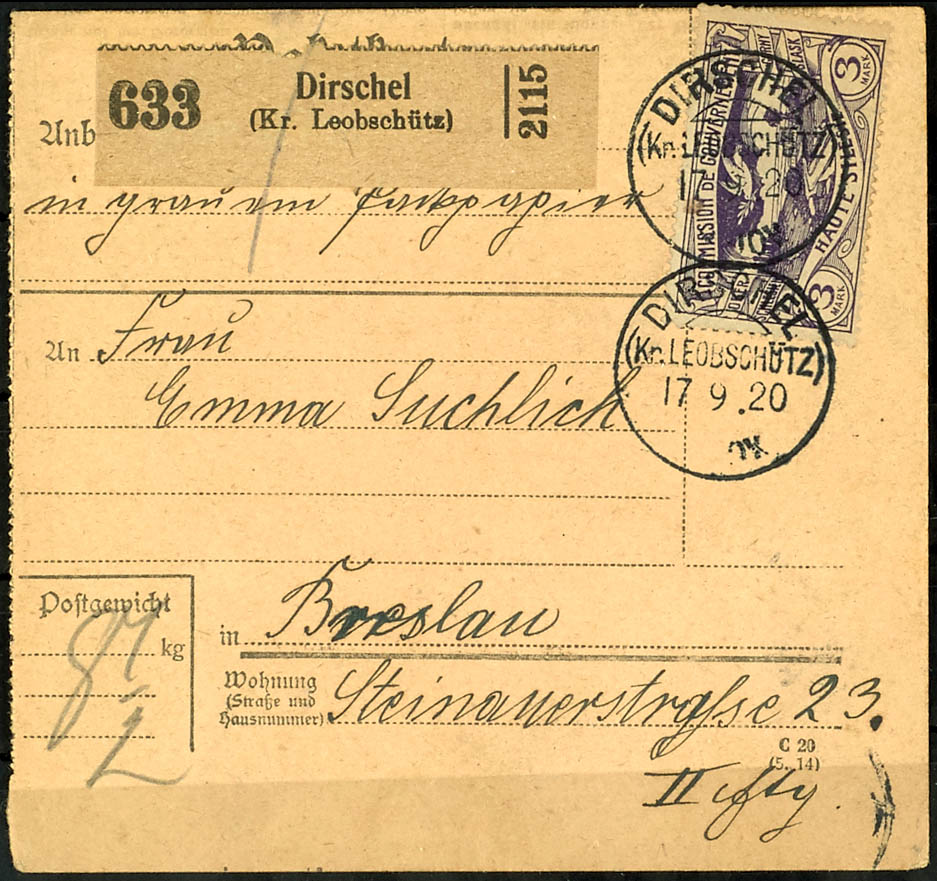 633
Dirschel
(Kr. Leobschütz)
2115
Anb
in grauem Packpapier
3 MARK
COMMISSION DE GOUVERNEMENT
HAUTE SILÉSIE
3 MARK
DIRSCHEL
(Kr. LEOBSCHÜTZ)
17 9. 20
DIRSCHEL
(Kr. LEOBSCHÜTZ)
17 9. 20
An Frau
Emma Suchlich
Postgewicht
kg
in Breslau
Wohnung
(Straße und
Hausnummer)
Steinauerstraße 23.
C 20
(5. 14)
II